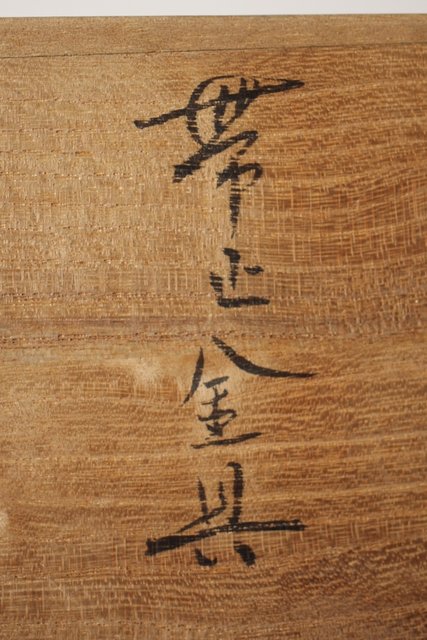 帯止金具